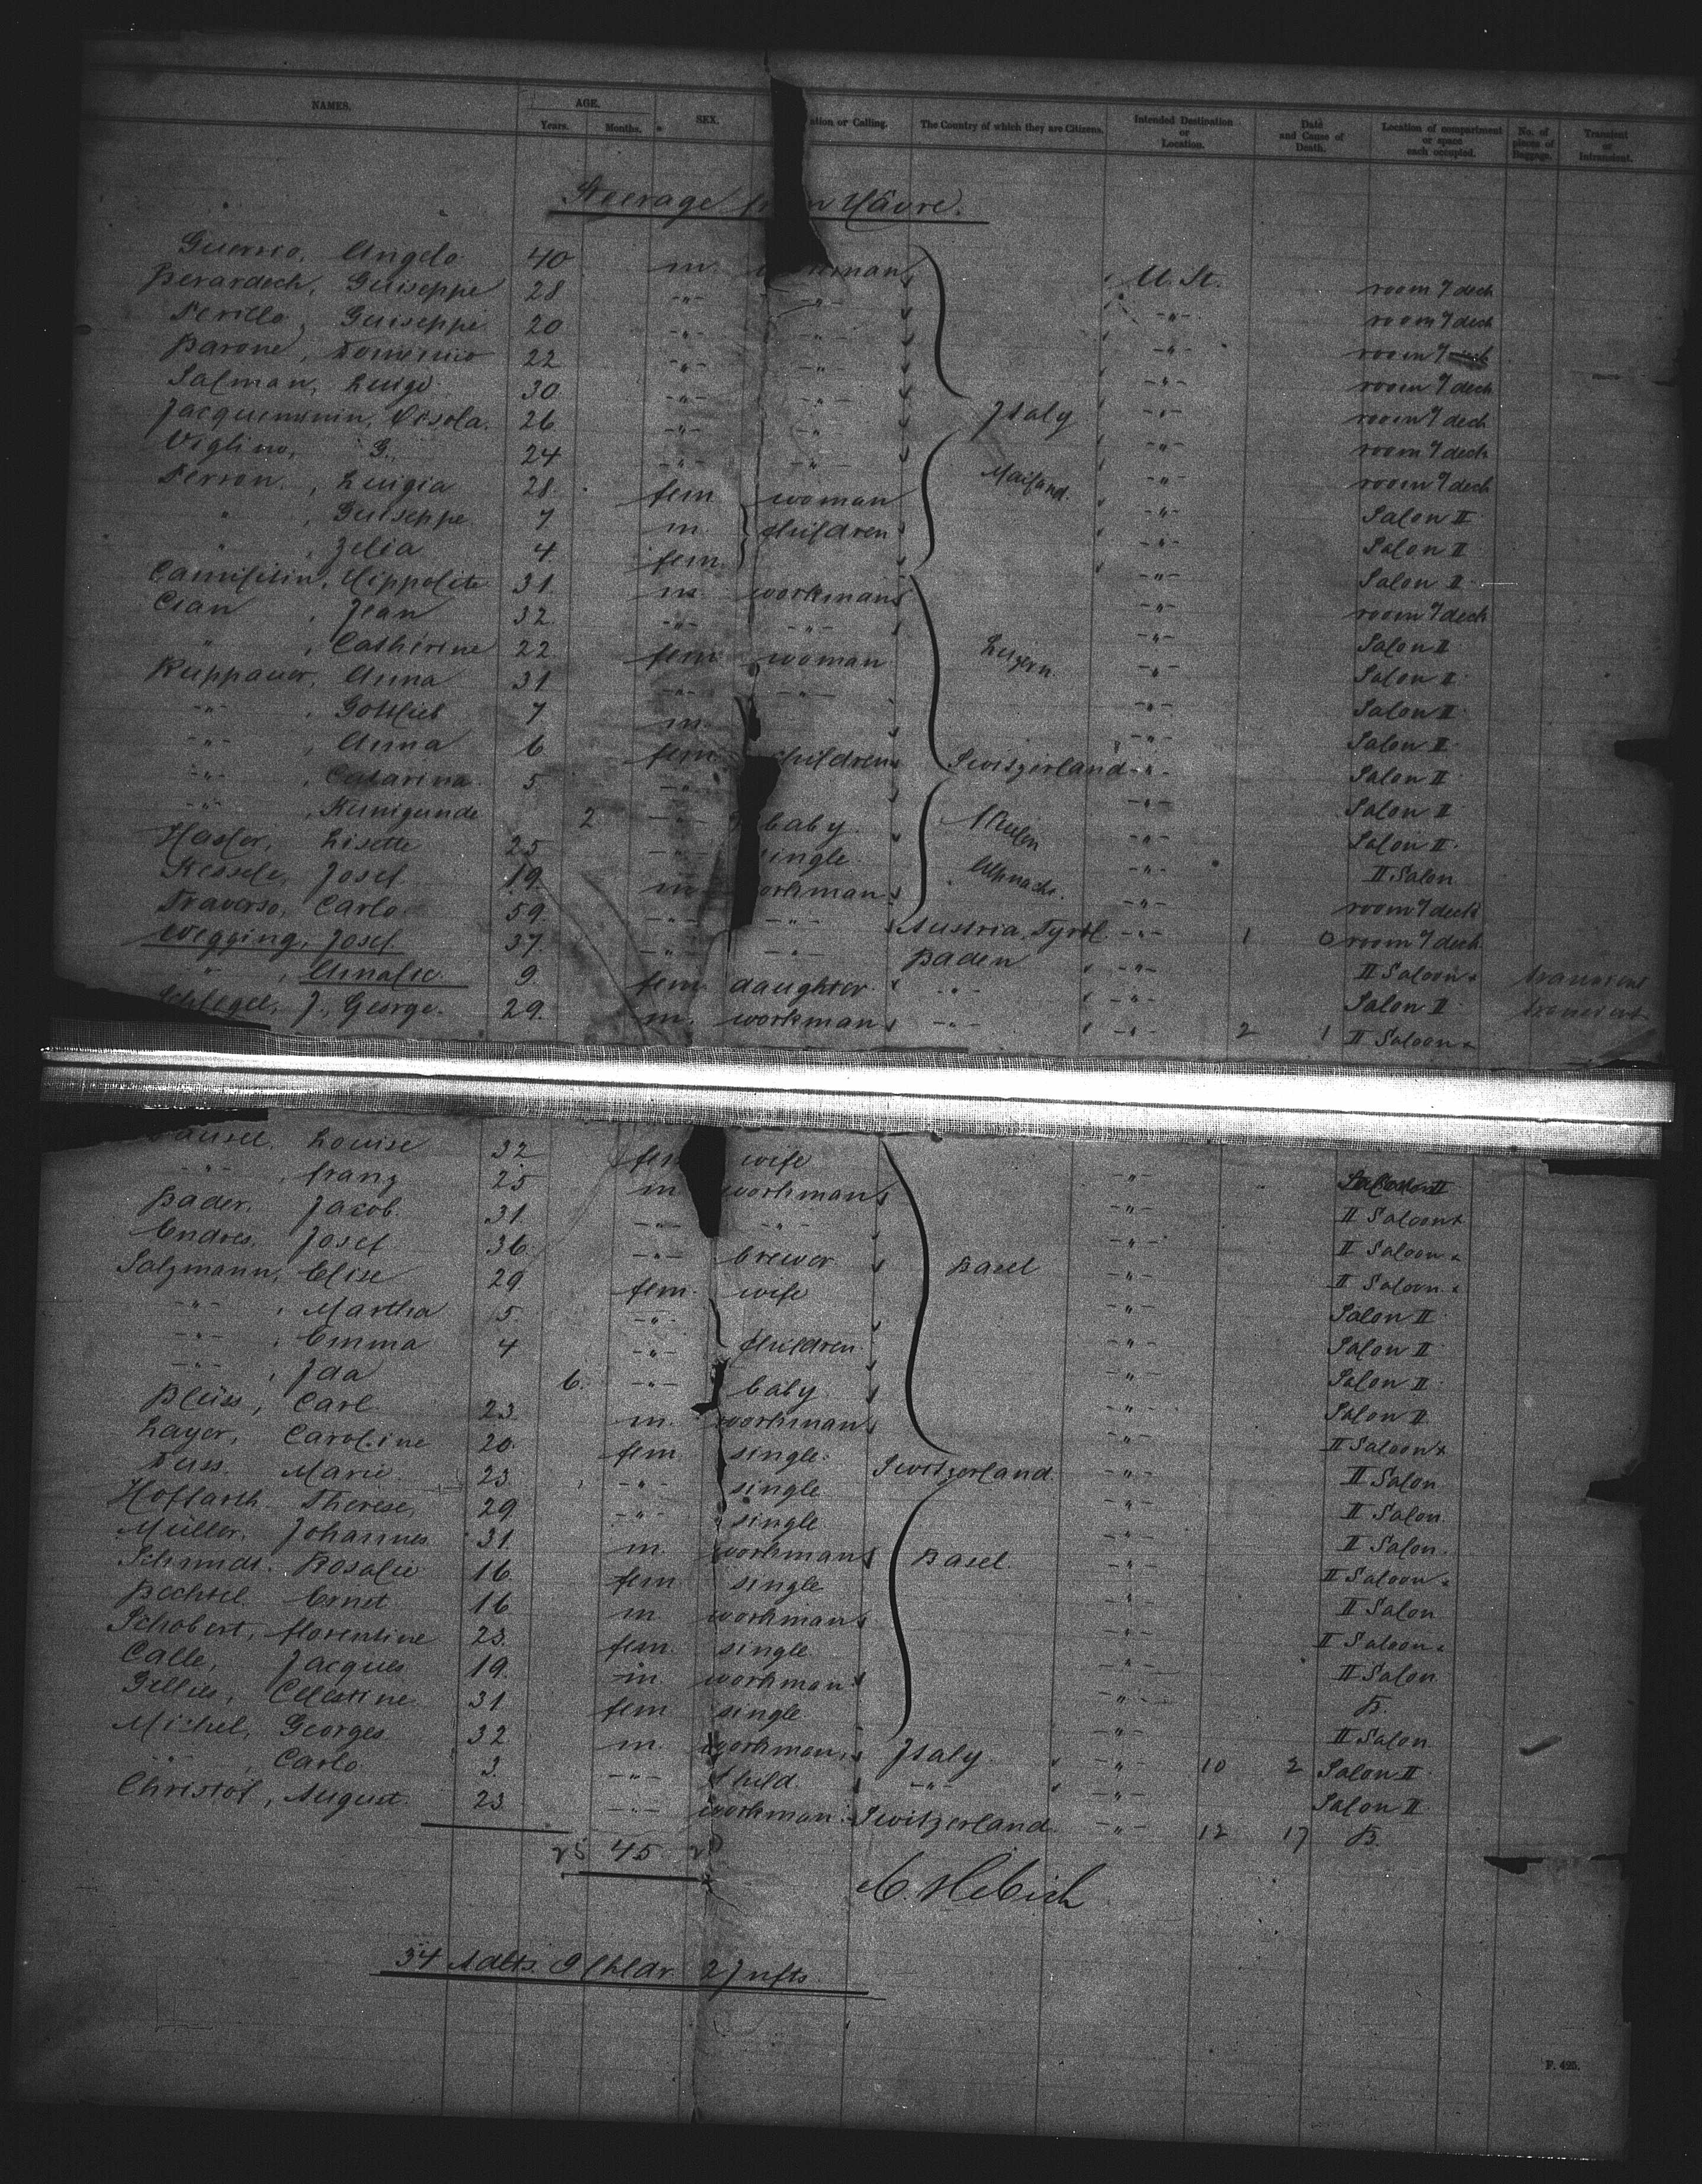 NAMES. AGE. Years. Months. SEX. ation or Calling. The Country of which they are Citizens. Intended Destination or Location. Date and Cause of Death. Location of compartment or space each occupied. No. of pieces of Baggage. Transient or Intransient.
Steerage Hâvre.
Guerrio, Angelo 40 m man U. St. room 7 deck
Berardech, Guiseppe 28 -"- -"- -"- room 7 deck
Perillo, Guiseppe 20 -"- -"- -"- room 7
Barone, Domenico 22 -"- -"- -"- room 7 deck
Salman, Luigi 30 -"- -"- -"- room 7 deck
Jacquemmin, Orsola. 26 -"- -"- Italy -"- room 7 deck
Viglino, G. 24 -"- -"- -"- room 7 deck
Perron, Luigia 28 fem woman Mailand. -"- Salon II
" , Guiseppe 7 m. children -"- Salon II
" , Zelia 4 fem -"- Salon II
Hippolite 31. m workman -"- room 7 deck
Cian, Jean 32 -"- -"- -"- Salon II
" , Catherine 22 fem woman Luzern -"- Salon II
Ruppauer, Anna 31 -"- -"- -"- Salon II
-"- , Gottlieb 7 m -"- Salon II
-"- , Anna 6 fem children Switzerland -"- Salon II
-"- , Catarina 5 -"- -"- Salon II
-"- , Kunigunde 2 -"- baby -"- Salon II
Hasler, Lisette 25 -"- ingle -"- II Salon
Kessele, Josef 19 m orkman Alpnach. -"- room 7 deck
Traverso, Carlo 59. -"- -"- Austria, Tyrol -"- 1 0 room 7 deck
Wegging, Josef 37 -"- -"- Baden -"- II Saloon transient
" , Amalie 9. fem. daughter -"- -"- Salon II transient
Schlegel, J. George. 29. m. workman -"- -"- 2 1 II Saloon
Louise 32 fem wife -"- Salon II
-"- , Franz 25 m workman -"- II Saloon
Bader, Jacob. 31. -"- -"- -"- II Saloon
Endres, Josef 36 -"- brewer Basel -"- II Saloon
Salzmann, Elise 29 fem. wife -"- Salon II
-"- , Martha 5. -"- -"- Salon II
-"- , Emma 4 -"- children -"- Salon II
-"- , Ida 6. -"- baby -"- Salon II
Blüss, Carl 23. m. workman -"- II Saloon
Layer, Caroline 20. fem single. Switzerland -"- II Salon
Tuss. Marie 23. -"- single -"- II Salon
Hoffarth. Therese, 29 -"- single -"- II Salon
Müller, Johannes 31. m. workman Basel. -"- II Saloon
Schmidt. Rosalie 16 fem single -"- II Salon
Bechtel. Ernst 16 m workman -"- II Saloon
Schobert, Florentine 23. fem. single. -"- II Salon
Calle, Jacques 19. m. workman -"- B.
Gillies, Celestine 31 fem single -"- II Salon
Michel, Georges 32 m. workman Italy -"- 10 2 Salon II
-"- , Carlo 3. -"- child. -"- -"- Salon II
Christof, August 23 -"- workman Switzerland -"- 12 17 B.
25 45
C. Hebich
34 Adlts. 9 Chldr. 2 Infts.
F. 425.